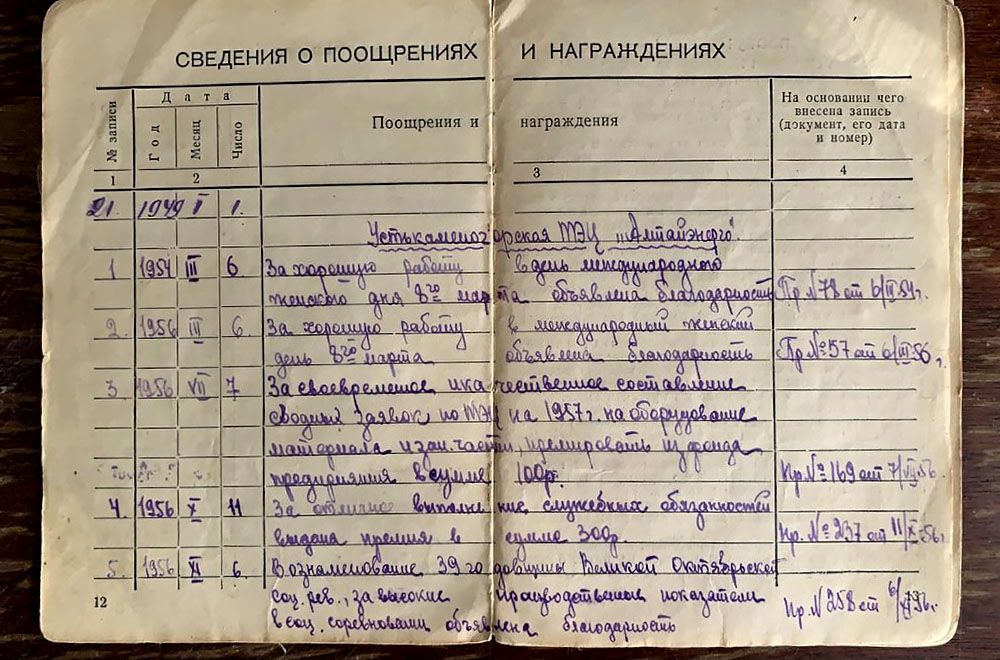 СВЕДЕНИЯ О ПООЩРЕНИЯХ И НАГРАЖДЕНИЯХ
№ записи
Дата
Год
Месяц
Число
Поощрения и награждения
На основании чего
внесена запись
(документ, его дата
и номер)
1 2 3 4
21. 1949 I 1.
Устькаменогорская ТЭЦ „Алтайэнерго"
1 1954 III 6 За хорошую работу в день международного
женского дня 8го марта объявлена благодарность Пр. №78 от 6/III-54г.
2. 1956 III 6 За хорошую работу в международный женский
день 8го марта объявлена благодарность Пр №57 от 6/III-56г.
3 1956 VII 7 За своевременое и качественное составление
сводных заявок по ТЭЦ на 1957г. на оборудование
материала и зап. части, премировать из фонда
предприятия в сумме 100р. Пр №169 от 7/VII-56.
4. 1956 X 11 За отличное выполнение служебных обязанностей
выдана премия в сумме 300р. Пр. №237 от 11/X-56г.
5. 1956 XI 6. В ознаменование 39 годовщины Великой Октябрьской
соц. рев., за высокие производственные показатели
в соц. соревновании объявлена благодарность Пр. №258 от 6/XI-56г.
12 13